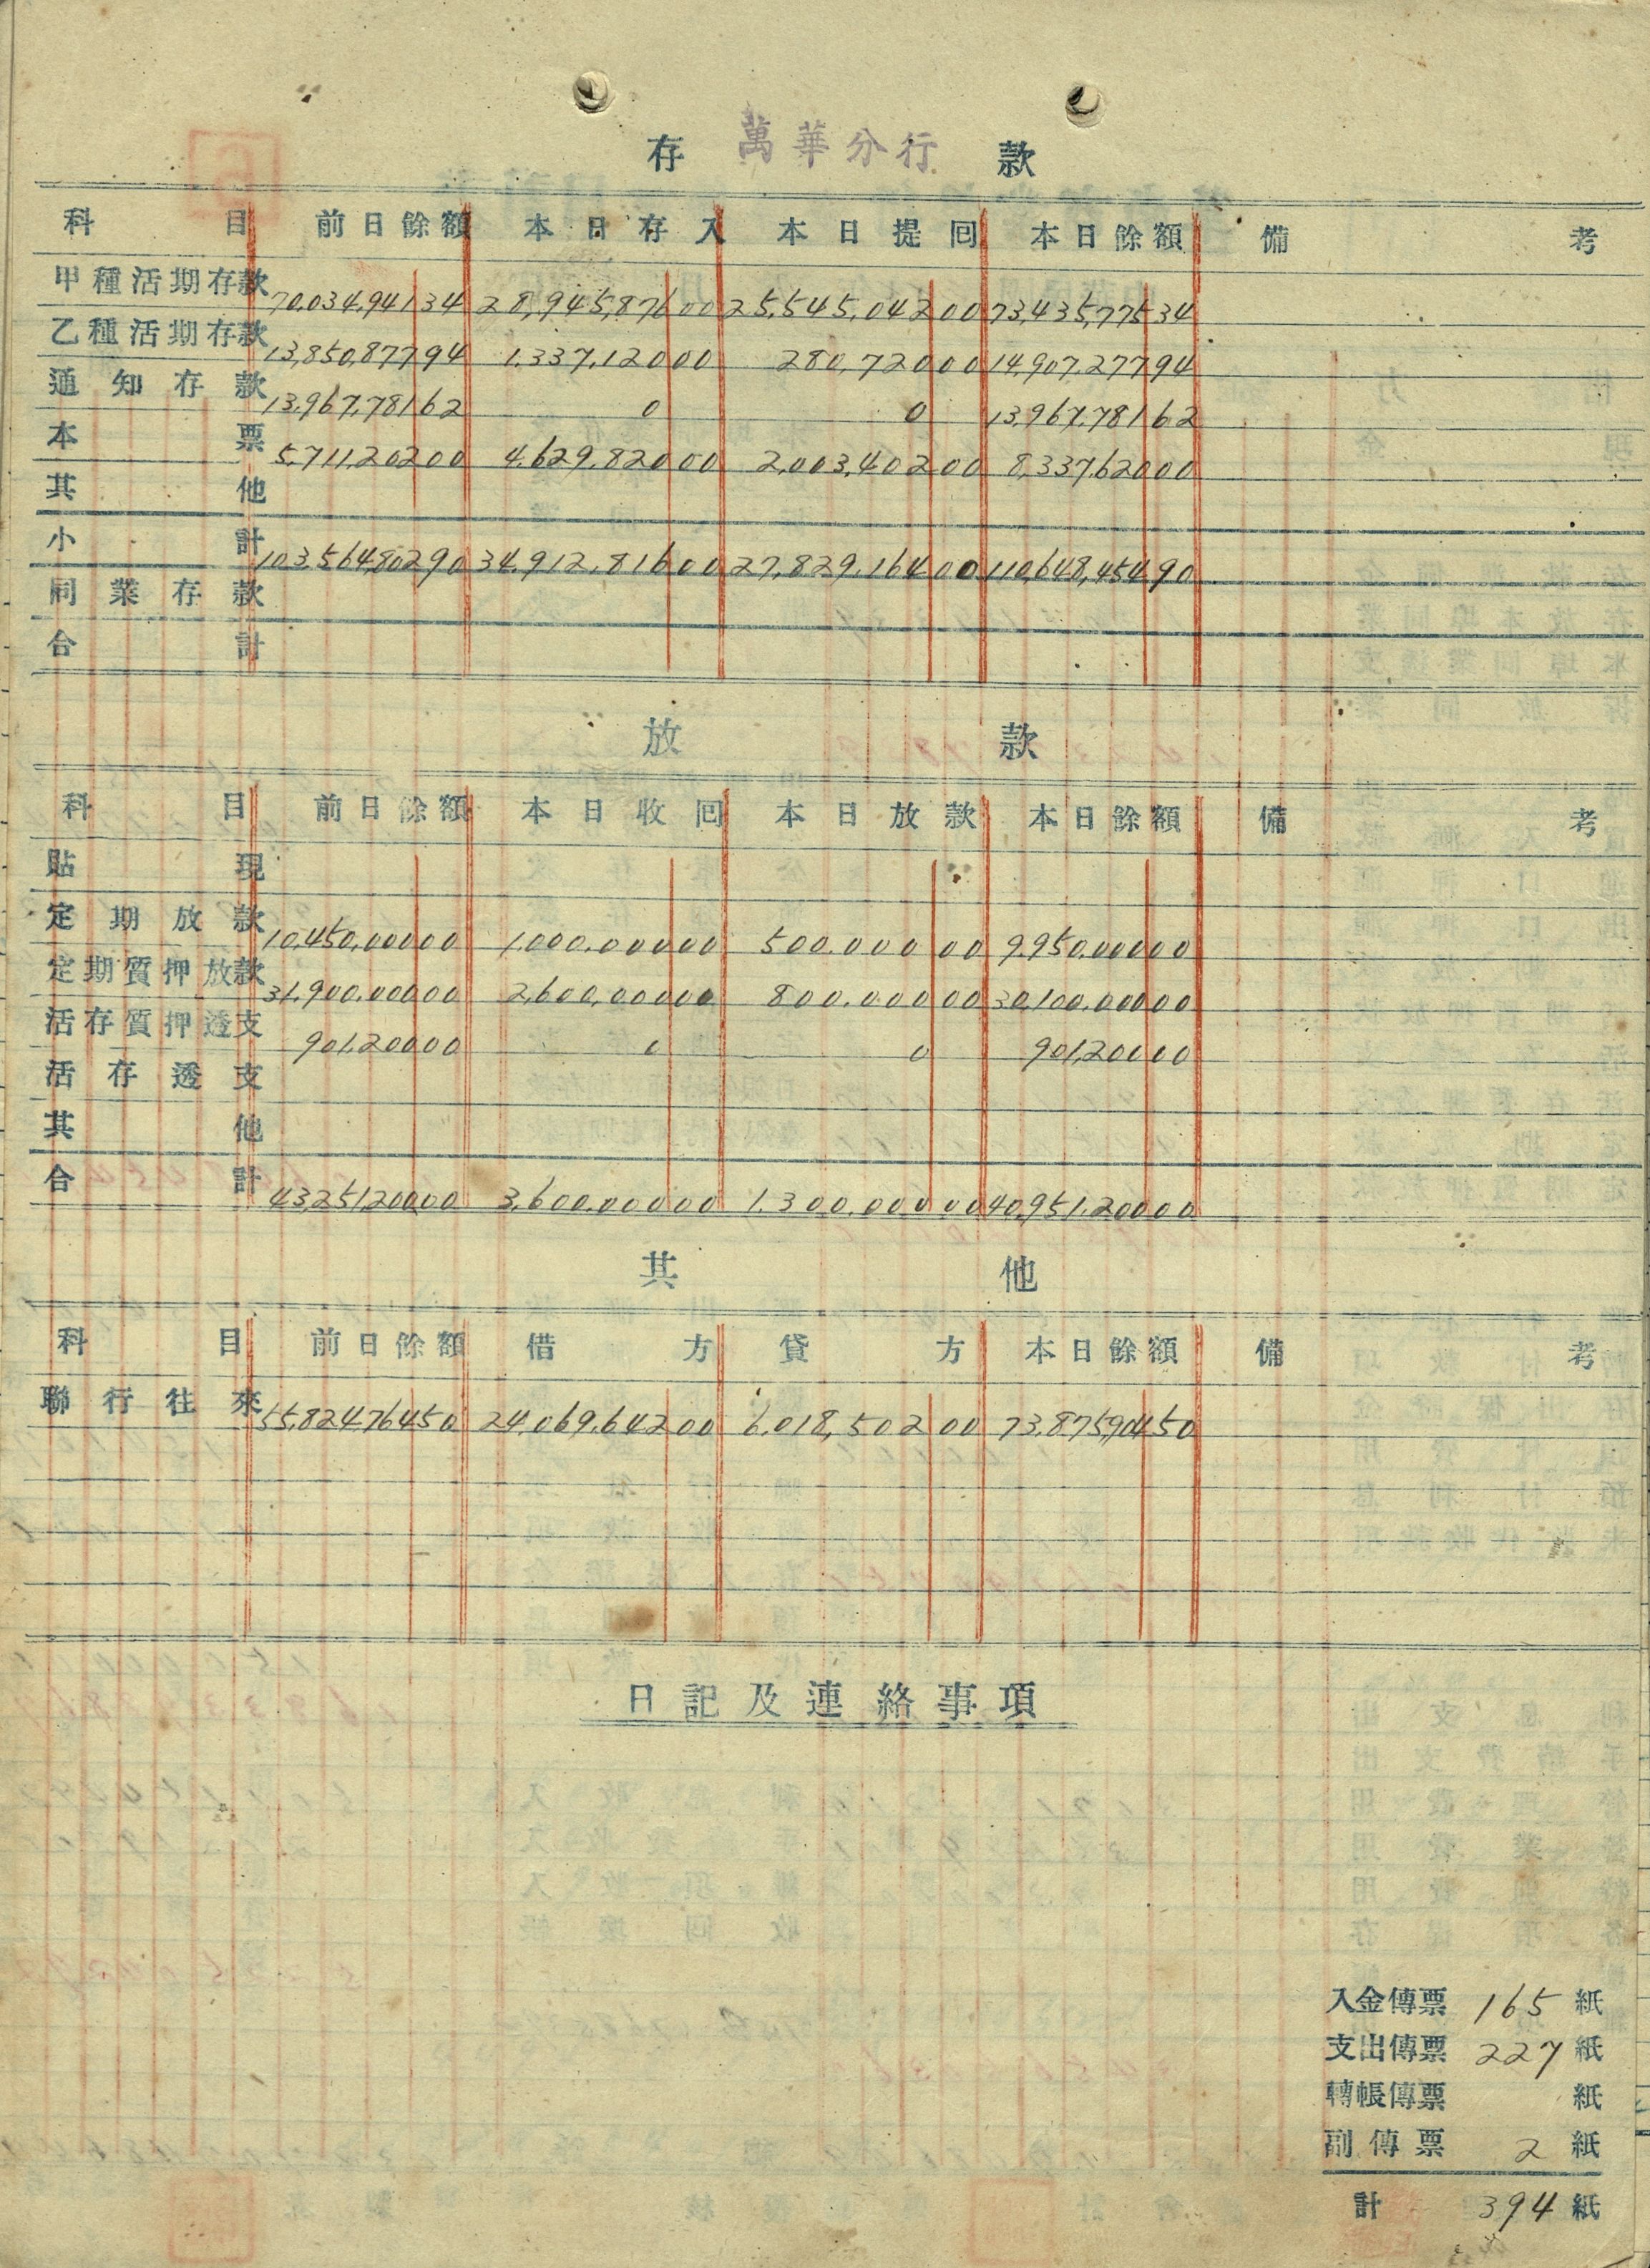 存 萬華分行 款
科目 前日餘額 本日存入 本日提回 本日餘額 備考
甲種活期存款 70,034,941 34 28,945,876 00 25,545,042 00 73,435,775 34
乙種活期存款 13,850,877 94 1,337,120 00 280,720 00 14,907,277 94
通知存款 13,967,781 62 0 0 13,967,781 62
本票 5,711,202 00 4,629,820 00 2,003,402 00 8,337,620 00
其他
小計 103,564,802 90 34,912,816 00 27,829,164 00 110,648,454 90
同業存款
合計
放款
科目 前日餘額 本日收回 本日放款 本日餘額 備考
貼現
定期放款 10,450,000 00 1,000,000 00 500,000 00 9,950,000 00
定期質押放款 31,900,000 00 2,600,000 00 800,000 00 30,100,000 00
活存質押透支 901,200 00 0 0 901,200 00
活存透支
其他
合計 43,251,200 00 3,600,000 00 1,300,000 00 40,951,200 00
其他
科目 前日餘額 借方 貸方 本日餘額 備考
聯行往來 55,824,764 50 24,069,642 00 6,018,502 00 73,875,904 50
日記及連絡事項
入金傳票 165 紙
支出傳票 227 紙
轉帳傳票 紙
副傳票 2 紙
計 394 紙